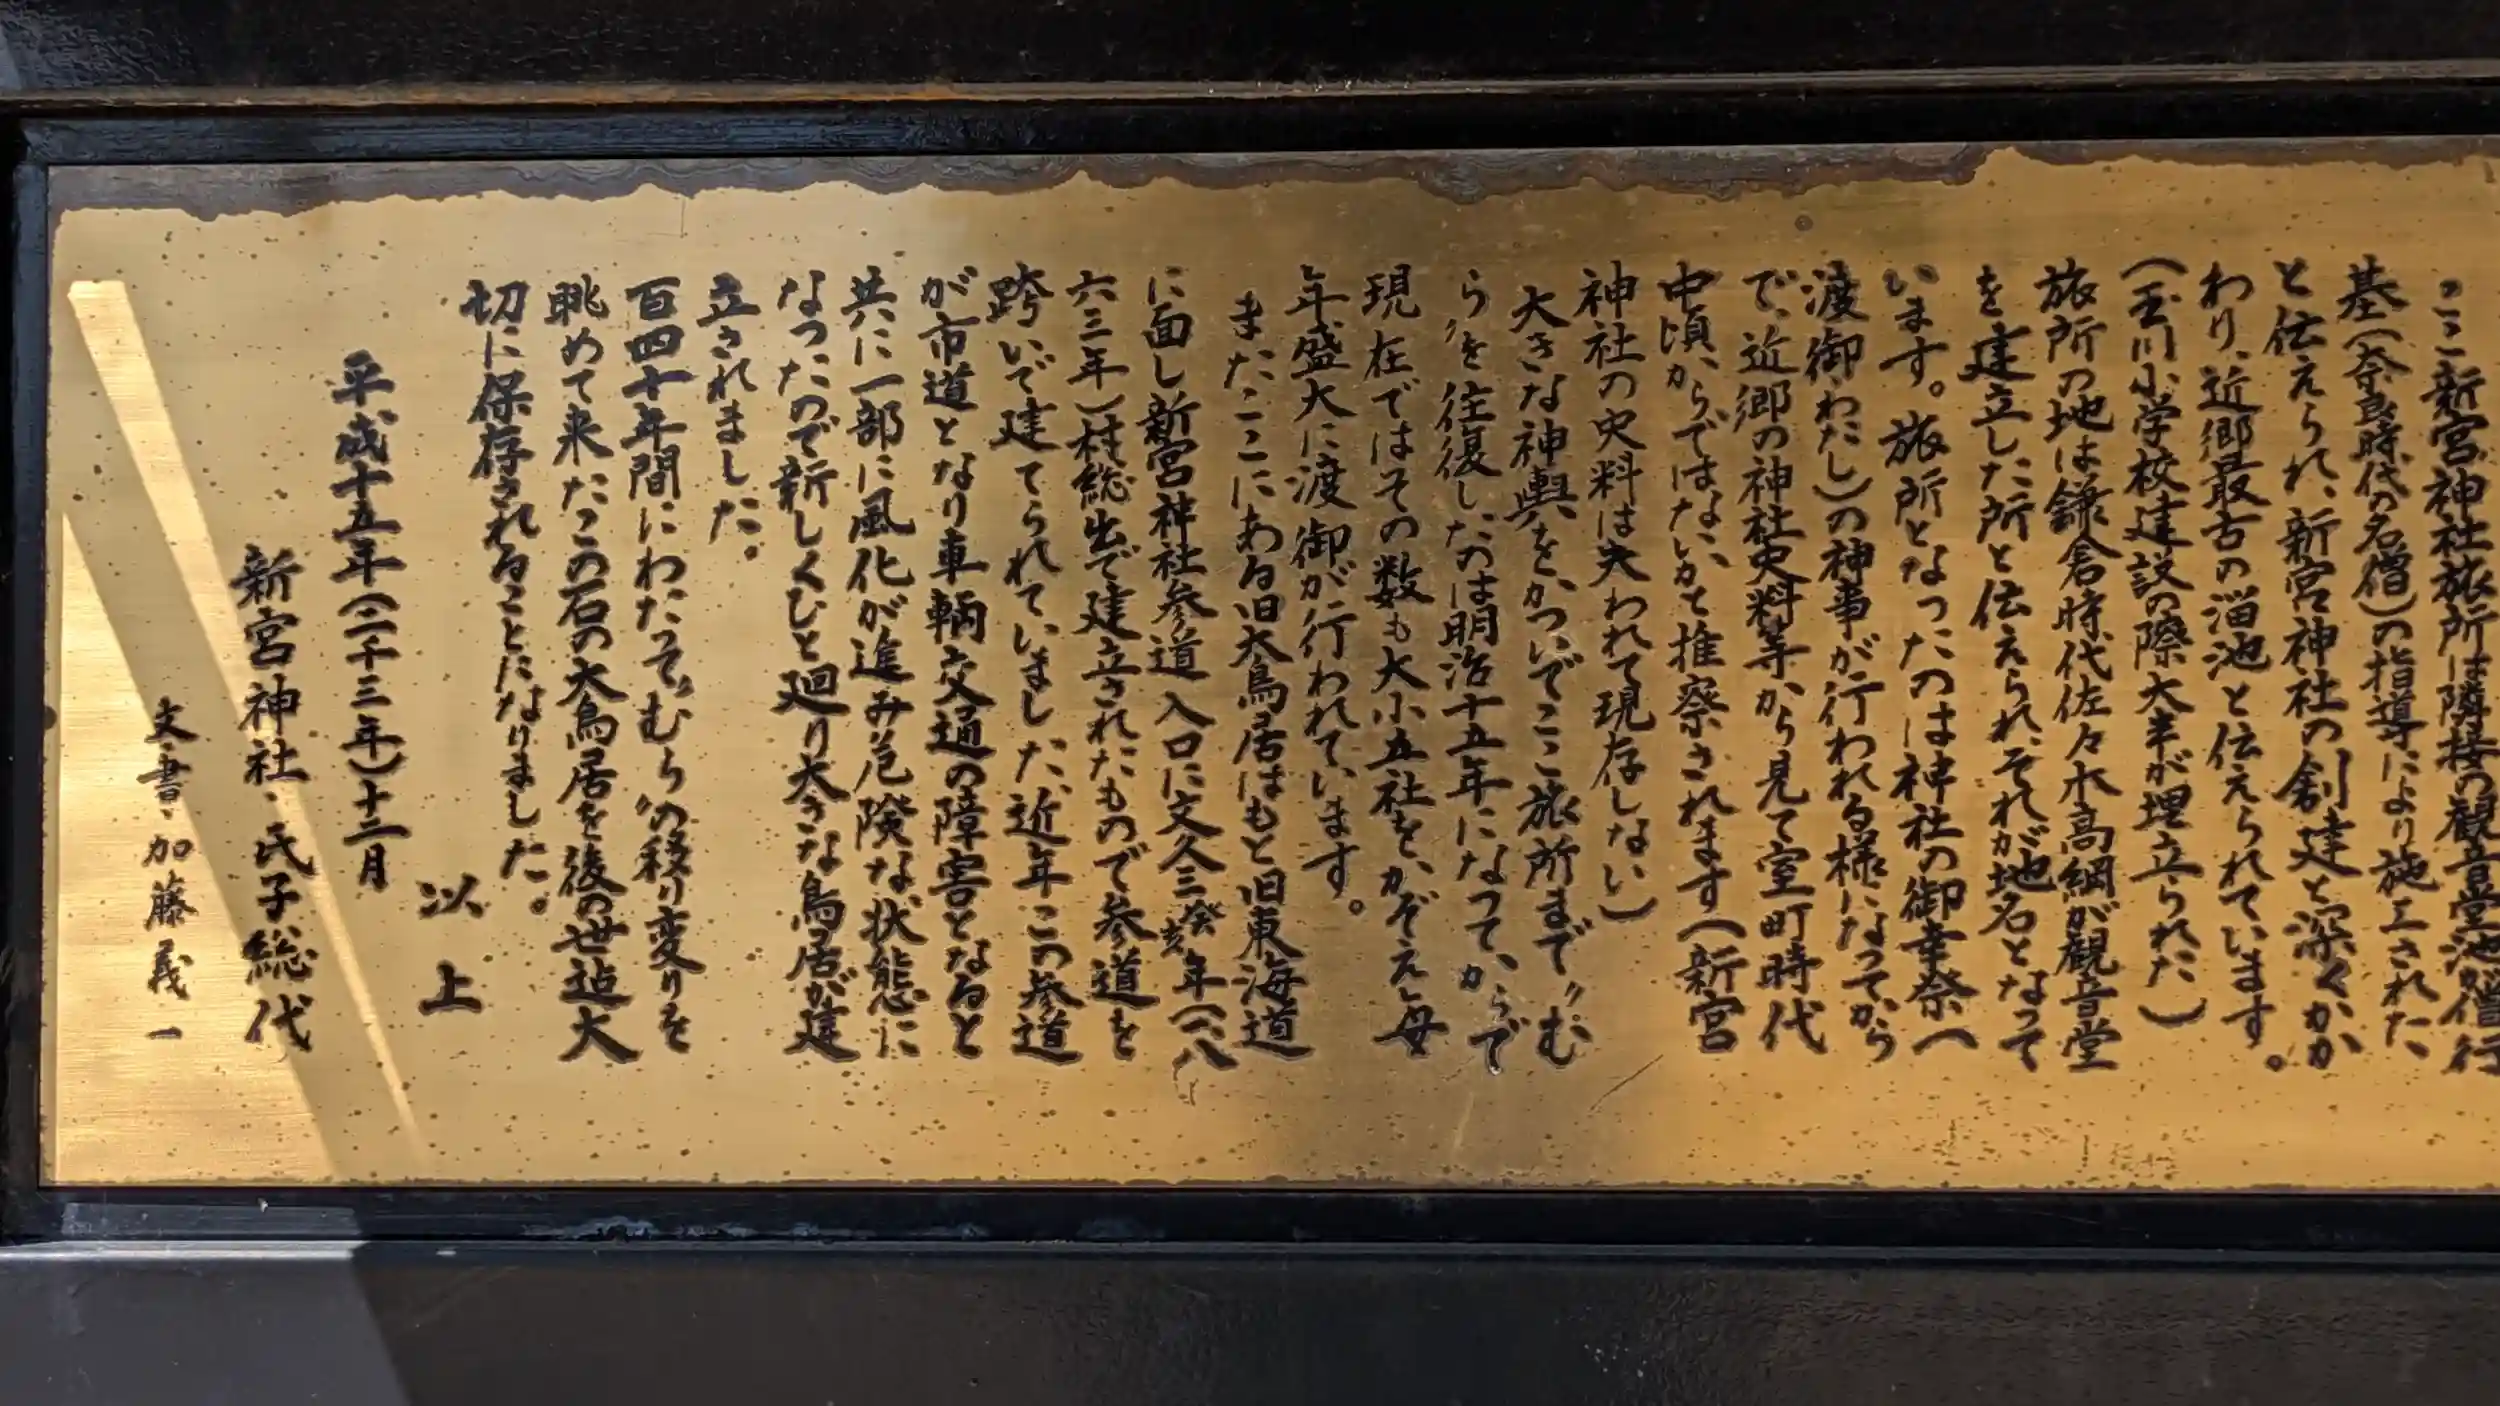 ここ新宮神社旅所は隣接の観音堂池が僧行
基(奈良時代の名僧)の指導により施工された
と伝えられ、新宮神社の創建と深くかか
わり、近郷最古の溜池と伝えられています。
(玉川小学校建設の際大半が埋立られた)
旅所の地は鎌倉時代佐々木高綱が観音堂
を建立した所と伝えられ、それが地名となって
います。旅所となったのは神社の御幸祭(
渡御わたし)の神事が行われる様になってから
で、近郷の神社史料等から見て室町時代
中頃からではないかと推察されます(新宮
神社の史料は失われて現存しない)
大きな神輿をかついでここ旅所まで〝む
ら〟を往復したのは明治十五年になってからで
現在ではその数も大小五社をかぞえ毎
年盛大に渡御が行われています。
またここにある旧大鳥居はもと旧東海道
に面し新宮神社参道入口に文久三癸亥年(一八
六三年)村総出で建立されたもので参道を
跨いで建てられていました、近年この参道
が市道となり車輌交通の障害となると
共に一部に風化が進み危険な状態に
なったので新しくひと廻り大きな鳥居が建
立されました。
百四十年間にわたって〝むら〟の移り変りを
眺めて来たこの石の大鳥居を後の世迠大
切に保存されることになりました。
以上
平成十五年(二千三年)十二月
新宮神社・氏子総代
文・書・加藤義一